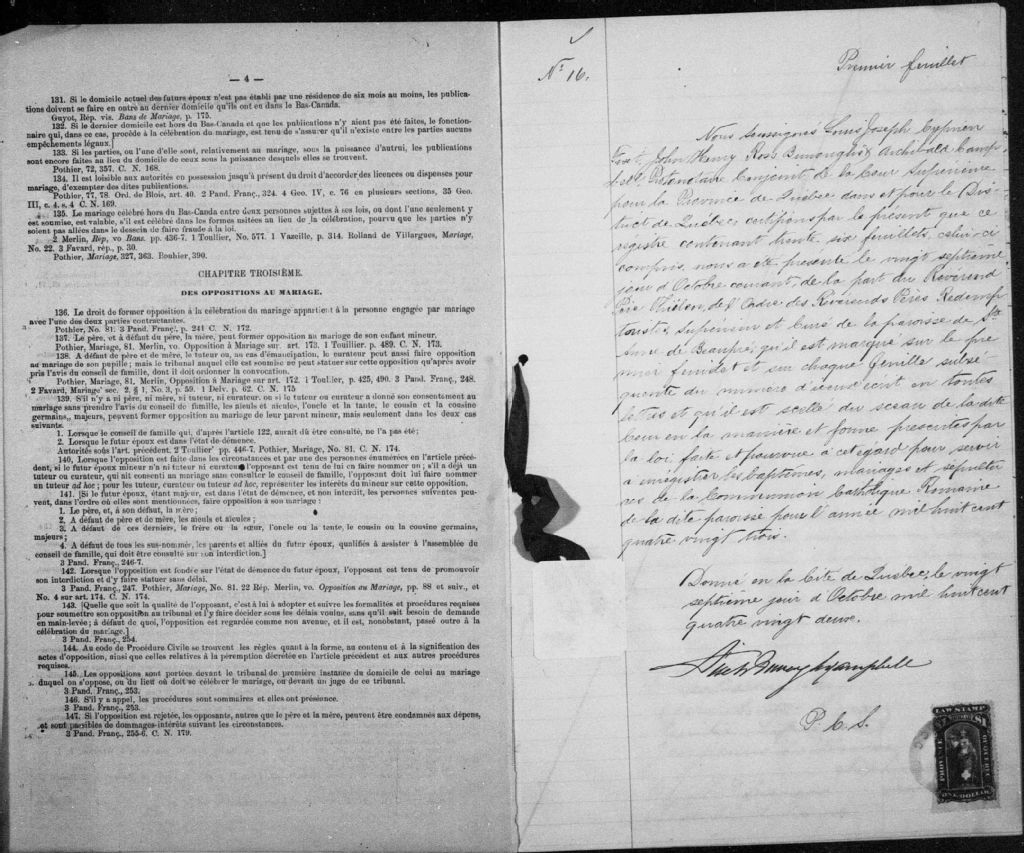 — 4 —
131. Si le domicile actuel des futurs époux n'est pas établi par une résidence de six mois au moins, les publica-
tions doivent se faire en outre au dernier domicile qu'ils ont eu dans le Bas-Canada.
Guyot, Rép. vis. Bans de Mariage, p. 175.
132. Si le dernier domicile est hors du Bas-Canada et que les publications n'y aient pas été faites, le fonction-
naire qui, dans ce cas, procède à la célébration du mariage, est tenu de s'assurer qu'il n'existe entre les parties aucuns
empêchements légaux.]
133. Si les parties, ou l'une d'elle, sont, relativement au mariage, sous la puissance d'autrui, les publications
sont encore faites au lieu du domicile de ceux sous la puissance desquels elles se trouvent.
Pothier, 72, 357. C. N. 168.
134. Il est loisible aux autorités en possession jusqu'à présent du droit d'accorder des licences ou dispenses pour
mariage, d'exempter des dites publications.
Pothier, 77, 78. Ord. de Blois, art. 40. 2 Pand. Franç., 324. 4 Geo. IV, c. 76 en plusieurs sections, 35 Geo.
III, c. 4. s. 4 C. N. 169.
135. Le mariage célébré hors du Bas-Canda entre deux personnes sujettes à ses lois, ou dont l'une seulement y
est soumise, est valable, s'il est célébré dans les formes usitées au lieu de la célébration, pourvu que les parties n'y
soient pas allées dans le dessein de faire fraude à la loi.
2 Merlin, Rép, vo Bans. pp. 436-7. 1 Toullier, No. 577. 1 Vazeille, p. 314. Rolland de Villargues, Mariage,
No. 22. 3 Favard, rép., p. 30.
Pothier, Mariage, 327, 363. Rouhier, 390.
CHAPITRE TROISIÈME.
DES OPPOSITIONS AU MARIAGE.
136. Le droit de former opposition à la célébration du mariage appartient à la personne engagée par mariage
avec l'une des deux parties contractantes.
Pothier, No. 81. 3 Pand. Franç., p. 241 C. N. 172.
137. Le père, et à défaut du père, la mère, peut former opposition au mariage de son enfant mineur.
Pothier, Mariage, 81. Merlin, vo. Opposition à Mariage sur. art. 173. 1 Touillier. p. 489. C. N. 173.
138. A défaut de père et de mère, le tuteur ou, au cas d'émancipation, le curateur peut aussi faire opposition
au mariage de son pupille; mais le tribunal auquel elle est soumise ne peut statuer sur cette opposition qu'après avoir
pris l'avis du conseil de famille, dont il doit ordonner la convocation.
Pothier, Mariage, 81, Merlin, Opposition à Mariage sur art. 172. 1 Toullier, p. 425, 490. 3 Pand. Franç., 248.
2 Favard, Mariage sec. 2, § 1, No. 3, p. 59. 1 Delv. p. 62. C. N. 175
139. S'il n'y a ni père, ni mère, ni tuteur, ni curateur, ou si le tuteur ou curateur a donné son consentement au
mariage sans prendre l'avis du conseil de famille, les aïeuls et aïeules, l'oncle et la tante, le cousin et la cousine
germains,, majeurs, peuvent former opposition au mariage de leur parent mineur, mais seulement dans les deux cas
suivants.
1. Lorsque le conseil de famille qui, d'après l'article 122, aurait dû être consulté, ne l'a pas été;
2. Lorsque le futur époux est dans l'état de démence.
Autorités sous l'art. précédent. 2 Toullier pp. 446-7. Pothier, Mariage, No. 81. C. N. 174.
140. Lorsque l'opposition est faite dans les circonstances et par une des personnes énumérées en l'article précé-
dent, si le futur époux mineur n'a ni tuteur ni curateur l'opposant est tenu de lui en faire nommer un; s'il a déjà un
tuteur ou curateur, qui ait consenti au mariage sans consulter le conseil de famille, l'opposant doit lui faire nommer
un tuteur ad hoc; pour les tuteur, curateur ou tuteur ad hoc, représenter les intérêts du mineur sur cette opposition.
141. [Si le futur époux, étant majeur, est dans l'état de démence, et non interdit, les personnes suivantes peu-
vent, dans l'ordre où elles sont mentionnées, faire opposition à son mariage:
1. Le père, et, à son défaut, la mère;
2. A défaut de père et de mère, les aïeuls et aïeules;
3. A défaut de ces derniers, le frère ou la sœur, l'oncle ou la tante, le cousin ou la cousine germains,
majeurs;
4. A défaut de tous les sus-nommés, les parents et alliés du futur époux, qualifiés à assister à l'assemblée du
conseil de famille, qui doit être consulté sur son interdiction.]
3 Pand. Franç., 246-7.
142. Lorsque l'opposition est fondée sur l'état de démence du futur époux, l'opposant est tenu de promouvoir
son interdiction et d'y faire statuer sans délai.
3 Pand. Franç., 247. Pothier, Mariage, No. 81. 22 Rép. Merlin, vo. Opposition au Mariage, pp. 88 et suiv., et
No. 4 sur art. 174. C. N. 174.
143. [Quelque soit la qualité de l'opposant, c'est à lui à adopter et suivre les formalités et procédures requises
pour soumettre son opposition au tribunal et l'y faire décider sous les délais voulus, sans qu'il soit besoin de demande
en main-levée; à défaut de quoi, l'opposition est regardée comme non avenue, et il est, nonobstant, passé outre à la
célébration du mariage.]
3 Pand. Franç., 254.
144. Au code de Procédure Civile se trouvent les règles quant à la forme, au contenu et à la signification des
actes d'opposition, ainsi que celles relatives à la péremption décrétée en l'article précédent et aux autres procédures
requises.
145. Les oppositions sont portées devant le tribunal de première instance du domicile de celui au mariage
duquel on s'oppose, ou du lieu où doit se célébrer le mariage, ou devant un juge de ce tribunal.
3 Pand. Franç., 253.
146. S'il y a appel, les procédures sont sommaires et elles ont préséance.
3 Pand. Franç., 253.
147. Si l'opposition est rejetée, les opposants, autres que le père et la mère, peuvent être condamnés aux dépens,
et sont passibles de dommages-intérêts suivant les circonstances.
3 Pand. Franç., 255-6, C. N. 179.
No 16.
Premier feuillet
Nous soussignés Louis Joseph Cyprien
Fiset, John Henry Ross Burroughs, Archibald Camp
bell, Protonotaire Conjoint de la Cour Supérieure
pour la Province de Québec dans et pour le Dis-
trict de Québec, certifions par le present que ce
registre contenant trente six feuillets, celui-ci
compris, nous a été présenté le vingt septième
jour d'Octobre courant, de la part du Révérend
Père Tielen, de l'Ordre des Révérends Pères Rédemp
toristes, Supérieur et Curé de la paroisse de Ste
Anne de Beaupré, qu'il est marqué sur le pre
mier feuillet et sur chaque feuille subsé
quente du numéro d'icelui écrit en toutes
lettres et qu'il est scellé du sceau de la dite
Cour en la manière et forme prescrites par
la loi faite et pourvue à cet égard pour servir
à enregistrer les baptêmes, mariages et sépultu
res de la Communion Catholique Romaine
de la dite paroisse pour l'année mil huit cent
quatre vingt trois.
Donné en la Cité de Québec, le vingt
septième jour d'Octobre mil huit cent
quatre vingt deux.
Campbell
P. C. S.
LAW STAMP
PROVINCE
OF QUEBEC
$1
ONE DOLLAR